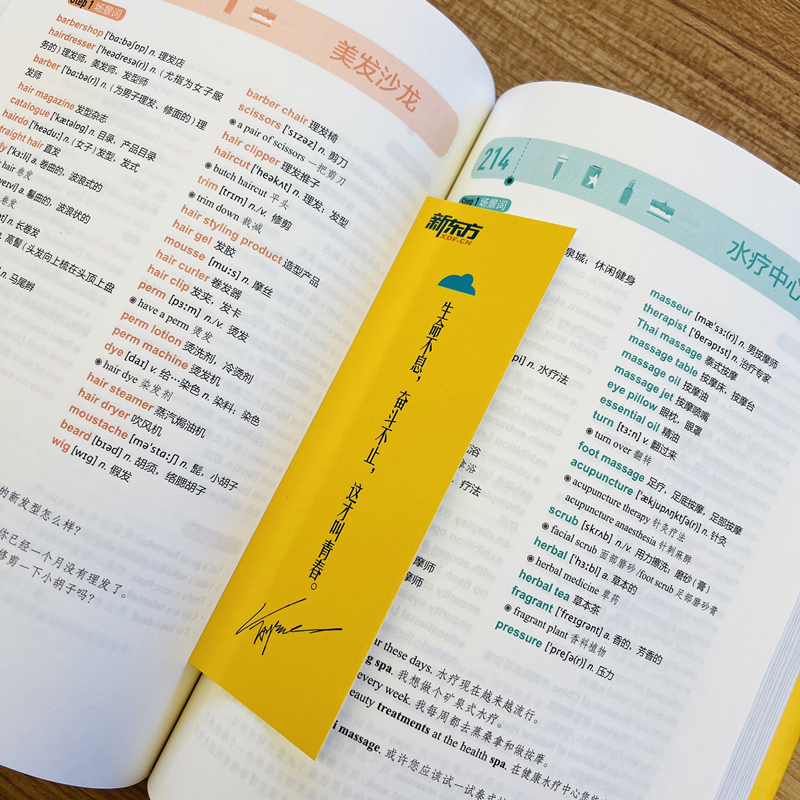 Step 1 场景词
美发沙龙
barbershop [ˈbɑːbəʃɒp] n. 理发店
hairdresser [ˈheədresə(r)] n. (尤指为女子服
务的) 理发师, 美发师, 发型师
barber [ˈbɑːbə(r)] n. (为男子理发、修面的) 理
发师
hair magazine 发型杂志
catalogue [ˈkætəlɒɡ] n. 目录, 产品目录
hairdo [ˈheəduː] n. (女子) 发型, 发式
traight hair 直发
ly [ˈkɜːli] a. 卷曲的, 波浪式的
hair 卷发
a. 鬈曲的, 波浪状的
卷发
n. 长卷发
n. 高髻 (头发向上梳在头顶上盘
n. 马尾辫
barber chair 理发椅
scissors [ˈsɪzəz] n. 剪刀
a pair of scissors 一把剪刀
hair clipper 理发推子
haircut [ˈheəkʌt] n. 理发; 发型
butch haircut 平头
trim [trɪm] n./v. 修剪
trim down 裁减
hair styling product 造型产品
hair gel 发胶
mousse [muːs] n. 摩丝
hair curler 卷发器
hair clip 发夹, 发卡
perm [pɜːm] n./v. 烫发
have a perm 烫发
perm lotion 烫洗剂, 冷烫剂
perm machine 烫发机
dye [daɪ] v. 给…染色 n. 染料, 染色
hair dye 染发剂
hair steamer 蒸汽焗油机
hair dryer 吹风机
moustache [məˈstɑːʃ] n. 髭, 小胡子
beard [bɪəd] n. 胡须, 络腮胡子
wig [wɪɡ] n. 假发
的新发型怎么样?
你已经一个月没有理发了。
修剪一下小胡子吗?
新东方
XDF.CN
生命不息,
奋斗不止,
这才叫青春。
214
水疗中心
Step 1 场景词
泉城; 休闲健身
n. 水疗法
浴
疗法
摩师
摩师
masseur [mæˈsɜː(r)] n. 男按摩师
therapist [ˈθerəpɪst] n. 治疗专家
Thai massage 泰式按摩
massage table 按摩床, 按摩台
massage oil 按摩油
massage jet 按摩喷嘴
eye pillow 眼枕, 眼罩
essential oil 精油
turn [tɜːn] v. 翻过来
turn over 翻转
foot massage 足疗, 足底按摩, 足部按摩
acupuncture [ˈækjupʌŋktʃə(r)] n. 针灸
acupuncture therapy 针灸疗法
acupuncture anaesthesia 针刺麻醉
scrub [skrʌb] n./v. 用力擦洗; 磨砂 (膏)
facial scrub 面部磨砂 /foot scrub 足部磨砂膏
herbal [ˈhɜːbl] a. 草本的
herbal medicine 草药
herbal tea 草本茶
fragrant [ˈfreɪɡrənt] a. 香的, 芳香的
fragrant plant 香料植物
pressure [ˈpreʃə(r)] n. 压力
ar these days. 水疗现在越来越流行。
g spa. 我想做个矿泉式水疗。
every week. 我每周都去蒸桑拿和做按摩。
eauty treatments at the health spa. 在健康水疗中心
i massage. 或许您应该试一试泰式